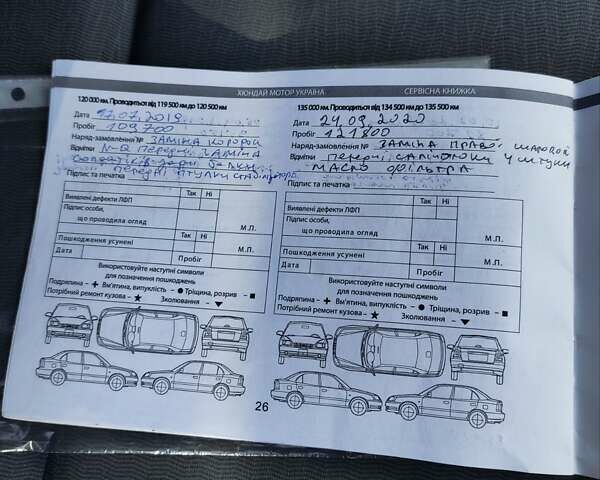 ХЮНДАЙ МОТОР УКРАЇНА
120 000 км. Проводиться від 119 500 км до 120 500 км
Дата 17.07.2019
Пробіг 109700
Наряд-замовлення № ЗАМІНА
Відмітки передні ЗАМІНА
передні втулки стабілізатора
Підпис та печатка
Так Ні
Виявлені дефекти ЛФП
Підпис особи,
що проводила огляд
М.П.
Так Ні
Пошкодження усунені
М.П.
Дата Пробіг
Використовуйте наступні символи
для позначення пошкоджень
Подряпина – + Вм'ятина, випуклість – ● Тріщина, розрив – ■
Потрібний ремонт кузова – ★ Зколювання – ▼
26
СЕРВІСНА КНИЖКА
135 000 км. Проводиться від 134 500 км до 135 500 км
Дата 24.09.2020
Пробіг 121800
Наряд-замовлення № ЗАМІНА ПРАВОЇ шаровой
Відмітки передні 4 штуки
МАСЛО ФІЛЬТРА
Підпис та печатка
Так Ні
Виявлені дефекти ЛФП
Підпис особи,
що проводила огляд
М.П.
Так Ні
Пошкодження усунені
М.П.
Дата Пробіг
Використовуйте наступні символи
для позначення пошкоджень
Подряпина – + Вм'ятина, випуклість – ● Тріщина, розрив – ■
Потрібний ремонт кузова – ★ Зколювання – ▼